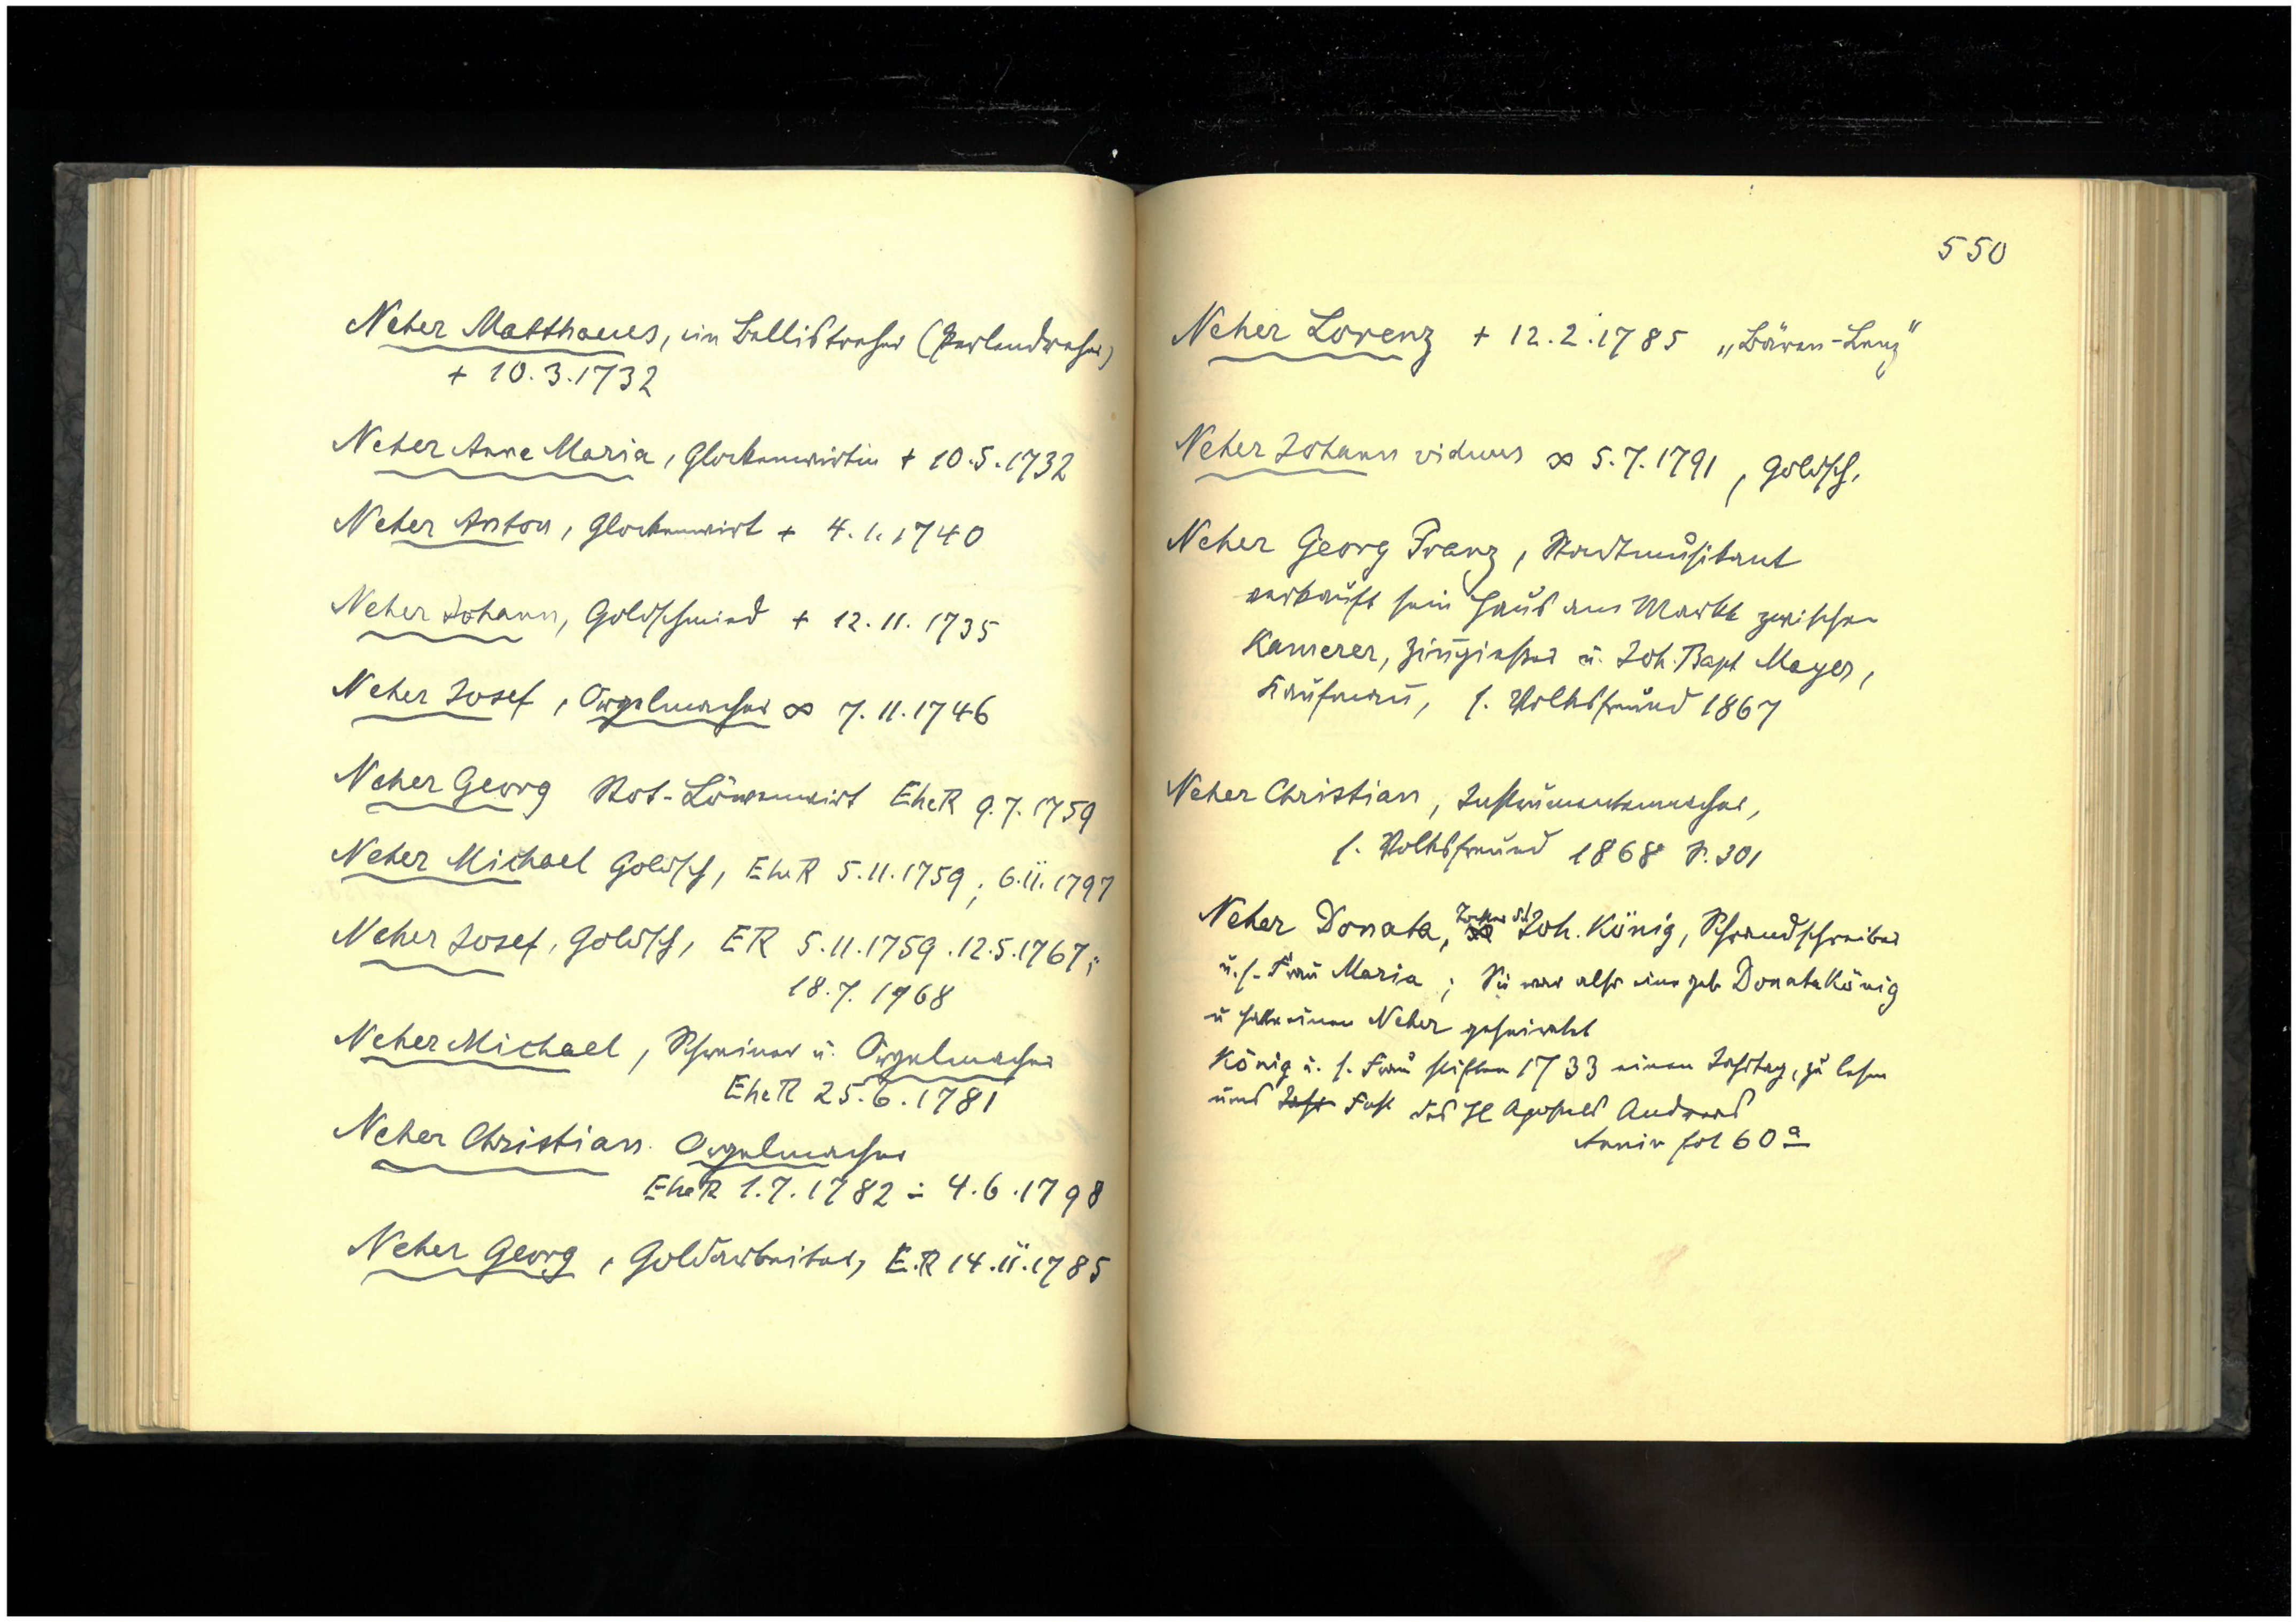 Neher Matthaeus, ein Ballistreher (Perlendreher)
+ 10.3.1732
Neher Anna Maria, Glockenwirtin + 10.5.1732
Neher Anton, Glockenwirt + 4.1.1740
Neher Johann, Goldschmied + 12.11.1735
Neher Josef, Orgelmacher ∞ 7.11.1746
Neher Georg Rot-Löwenwirt EheR 9.7.1759
Neher Michael Goldsch, EheR 5.11.1759; 6.II.1797
Neher Josef, Goldsch, ER 5.11.1759.12.5.1767;
18.7.1968
Neher Michael, Schreiner u. Orgelmacher
EheR 25.6.1781
Neher Christian. Orgelmacher
EheR 1.7.1782 ÷ 4.6.1798
Neher Georg, Goldarbeiter, E.R 14.II.1785
550
Neher Lorenz + 12.2.1785 „Bären-Lenz"
Neher Johann viduus ∞ 5.7.1791, Goldsch.
Neher Georg Franz, Stadtmusikant
verkauft sein Haus am Markt zwischen
Kamerer, Zingießer u. Joh. Bapt Mayer,
Kaufmann, s. Volksfreund 1867
Neher Christian, Instrumentenmacher,
s. Volksfreund 1868 S. 301
Neher Donata, Tochter d. Joh. König, Schrandschreiber
u. s. Frau Maria; Sie war also eine geb Donata König
u hatte einen Neher geheiratet
König u. s. Frau stiften 1733 einen Jahrtag, zu lesen
ums Fest des Hl Apostels Andreas
Anniv fol 60a